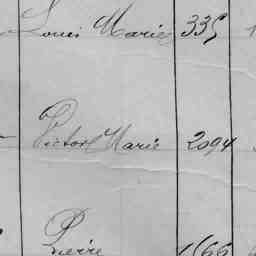 Louis Marie 335
Victor Marie 2094
Pierre 1666